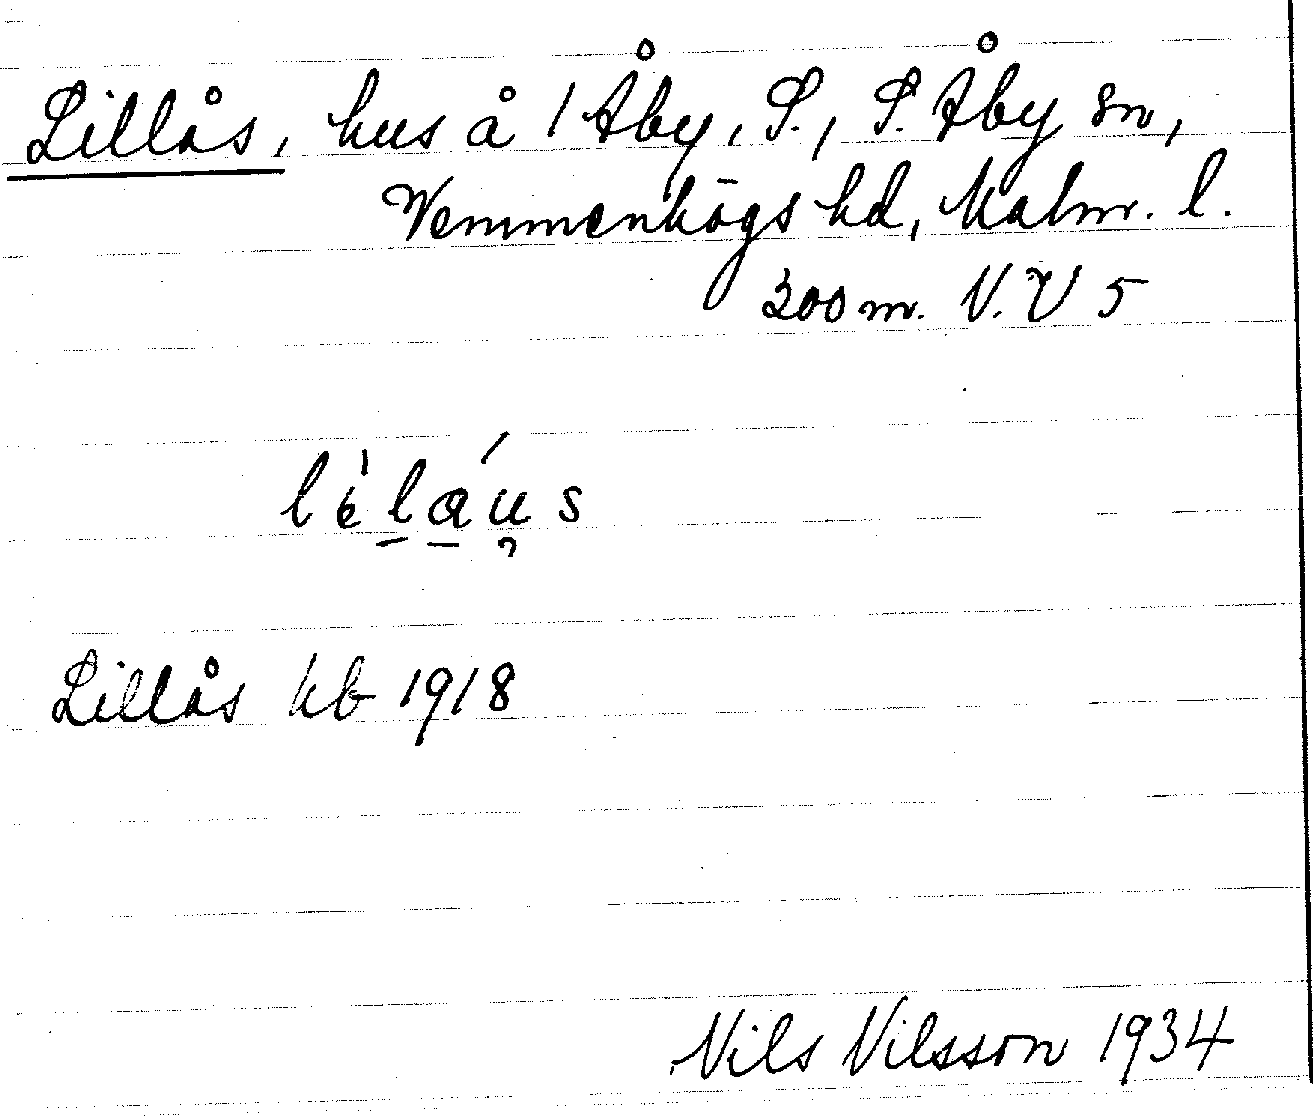 Lillås, hus å 1 Åby, S., S. Åby sn,
Vemmenhögs hd, Malm. l.
300 m. N.V 5
Lillås kb 1918
Nils Nilsson 1934